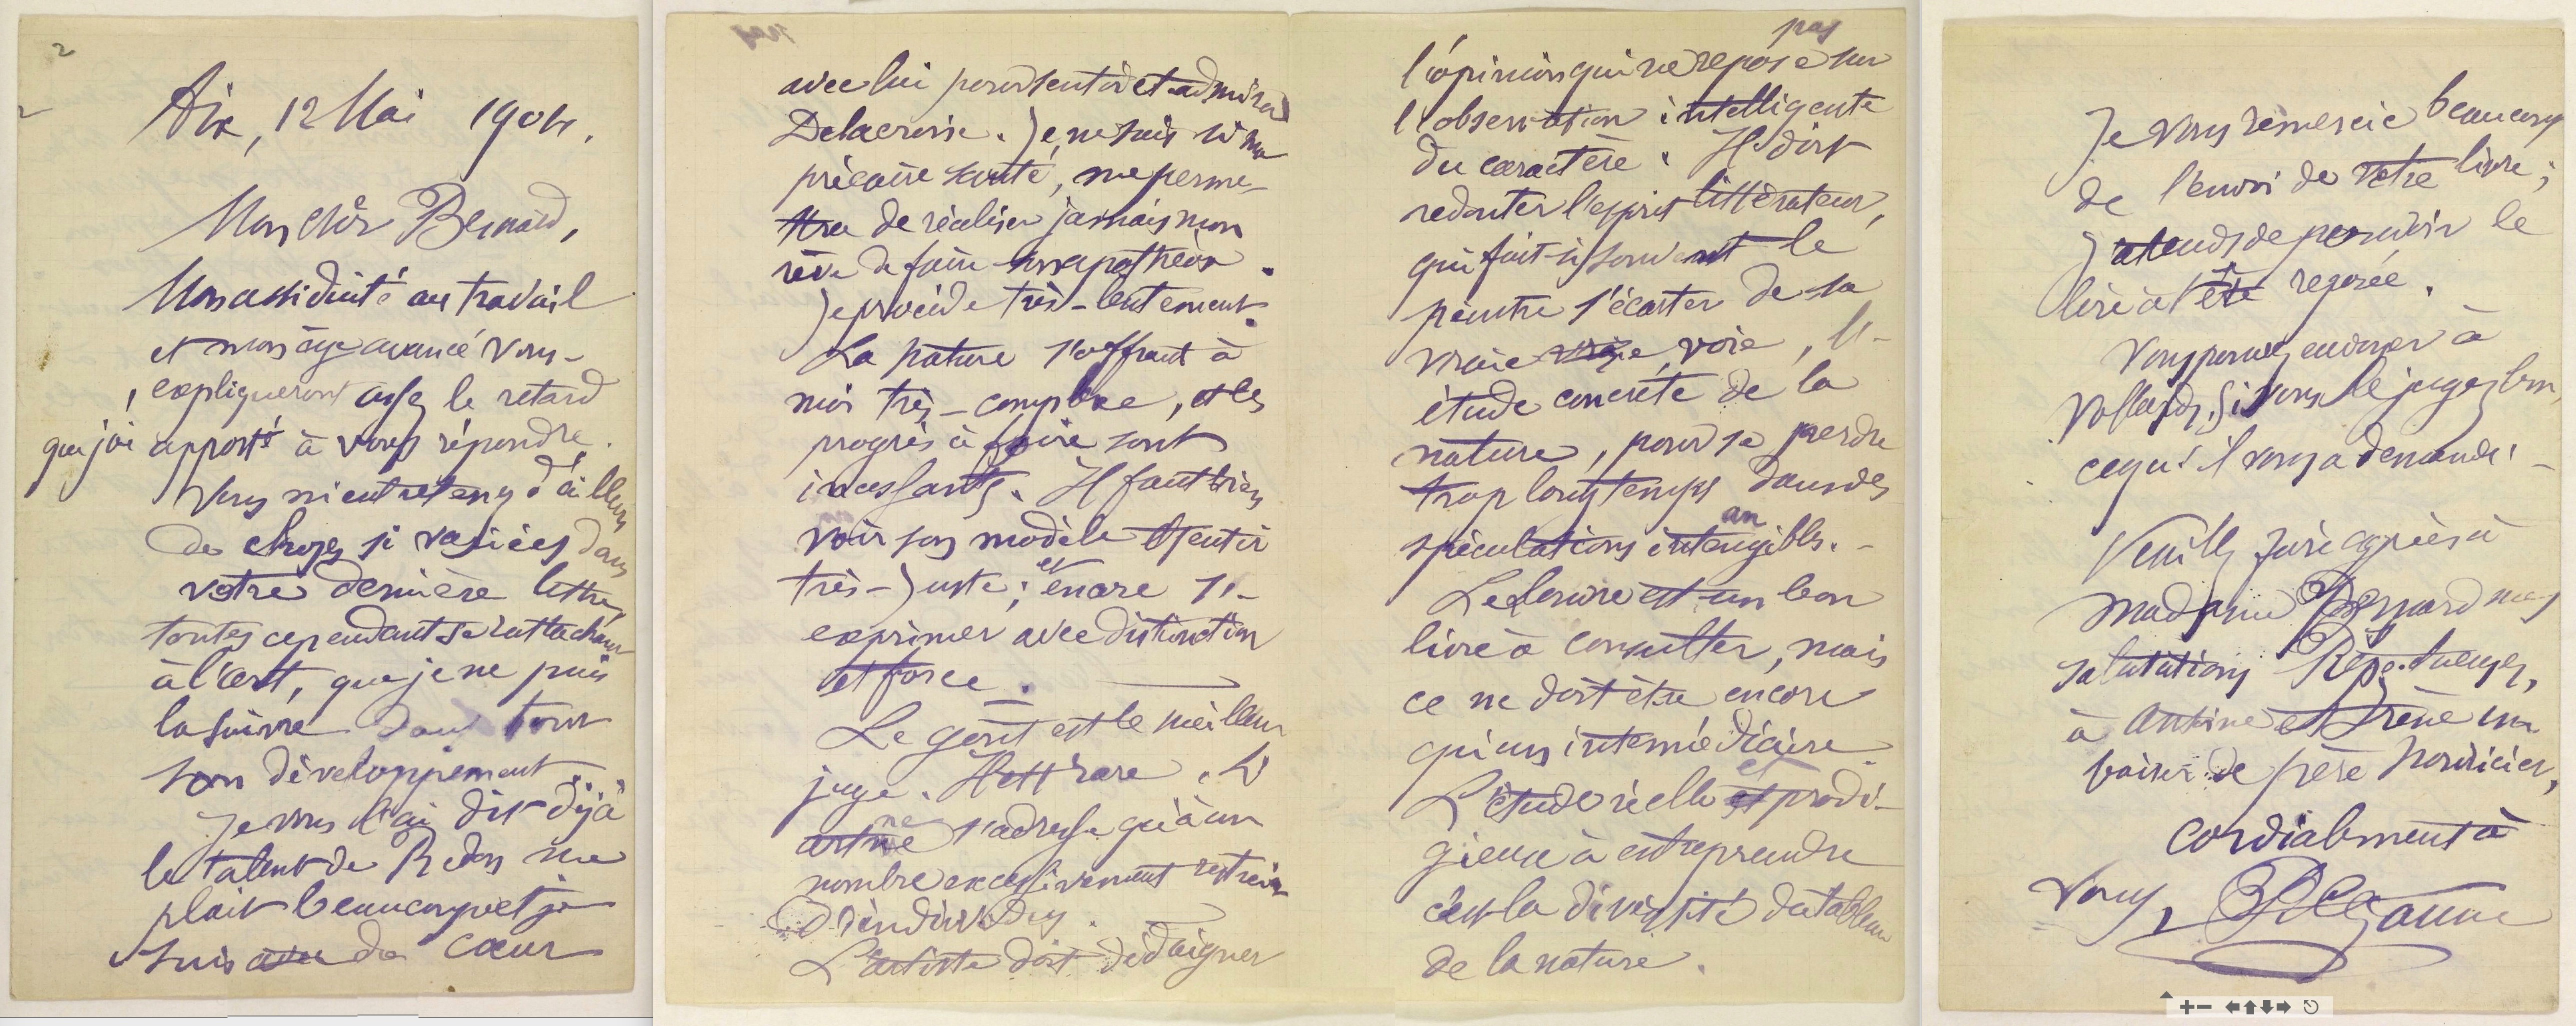 2
Aix, 12 Mai 1904.
Mon cher Bernard,
Mon assiduité au travail
et mon âge avancé vous
expliqueront assez le retard
que j'ai apporté à vous répondre.
Vous m'entretenez d'ailleurs
de choses si variées dans
votre dernière lettre,
toutes cependant se rattachant
à l'art, que je ne puis
la suivre dans tout
son développement
Je vous l'ai dit déjà
le talent de Redon me
plait beaucoup et je
suis avec de cœur
avec lui pour sentir et admirer
Delacroix. Je ne sais si ma
précaire santé, me perme-
ttra de réaliser jamais mon
rêve de faire son apothéose.
Je procède très-lentement.
La nature s'offrant à
moi très-complexe, et les
progrès à faire sont
incessants. Il faut bien
voir son modèle et sentir
très-juste; et encore s'
exprimer avec distinction
et force.
Le goût est le meilleur
juge. Il est rare. L'
art ne s'adresse qu'à un
nombre excessivement restreint
d'individus.
L'artiste doit dédaigner
pas
l'opinion qui ne repose sur
l'observation intelligente
du caractère. Il doit
redouter l'esprit littérateur,
qui fait si souvent le
peintre s'écarter de sa
vraie voie, l'-
étude concrète de la
nature, pour se perdre
trop longtemps dans des
an
spéculations intangibles.
Le Louvre est un bon
livre à consulter, mais
ce ne doit être encore
qu'un intermédiaire.
et
L'étude réelle et prodi-
gieuse à entreprendre
c'est la diversité du tableau
de la nature.
Je vous remercie beaucoup
de l'envoi de votre livre;
j'attends de pouvoir le
lire à tête reposée.
Vous pouvez envoyer à
Vollard, si vous le jugez bon,
ce qu'il vous a demandé.
Veuillez faire agréer à
madame Bernard mes
salutations Respectueuses,
à Antoine et Irène un
baiser de père nourricier,
Cordialement à
vous, P Cezanne